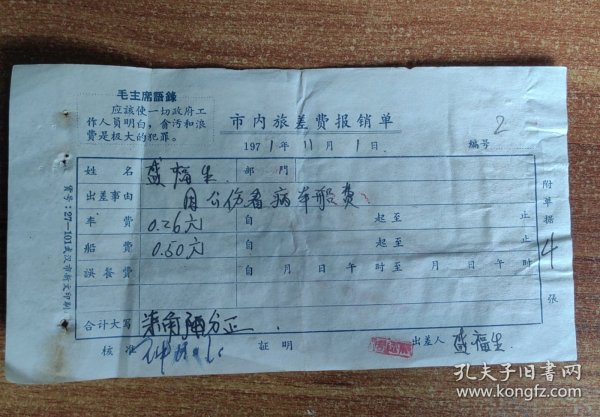 毛主席語錄
应該使一切政府工
作人員明白，貪汚和浪
費是极大的犯罪。
市内旅差費报销单
1971年11月1日
編号 2
姓名 盛福生 部門
出差事由 因公伤看病车船费
车費 0.26元 自 起至 止
船費 0.50元 自 起至 止
誤餐費 自 月 日 午 时至 月 日 午 时
合计大写 柒角 分正
核准 証明 出差人 盛福生
附单据 4 张
27—101武汉市新文印刷
孔夫子旧书网
www.kongfz.com